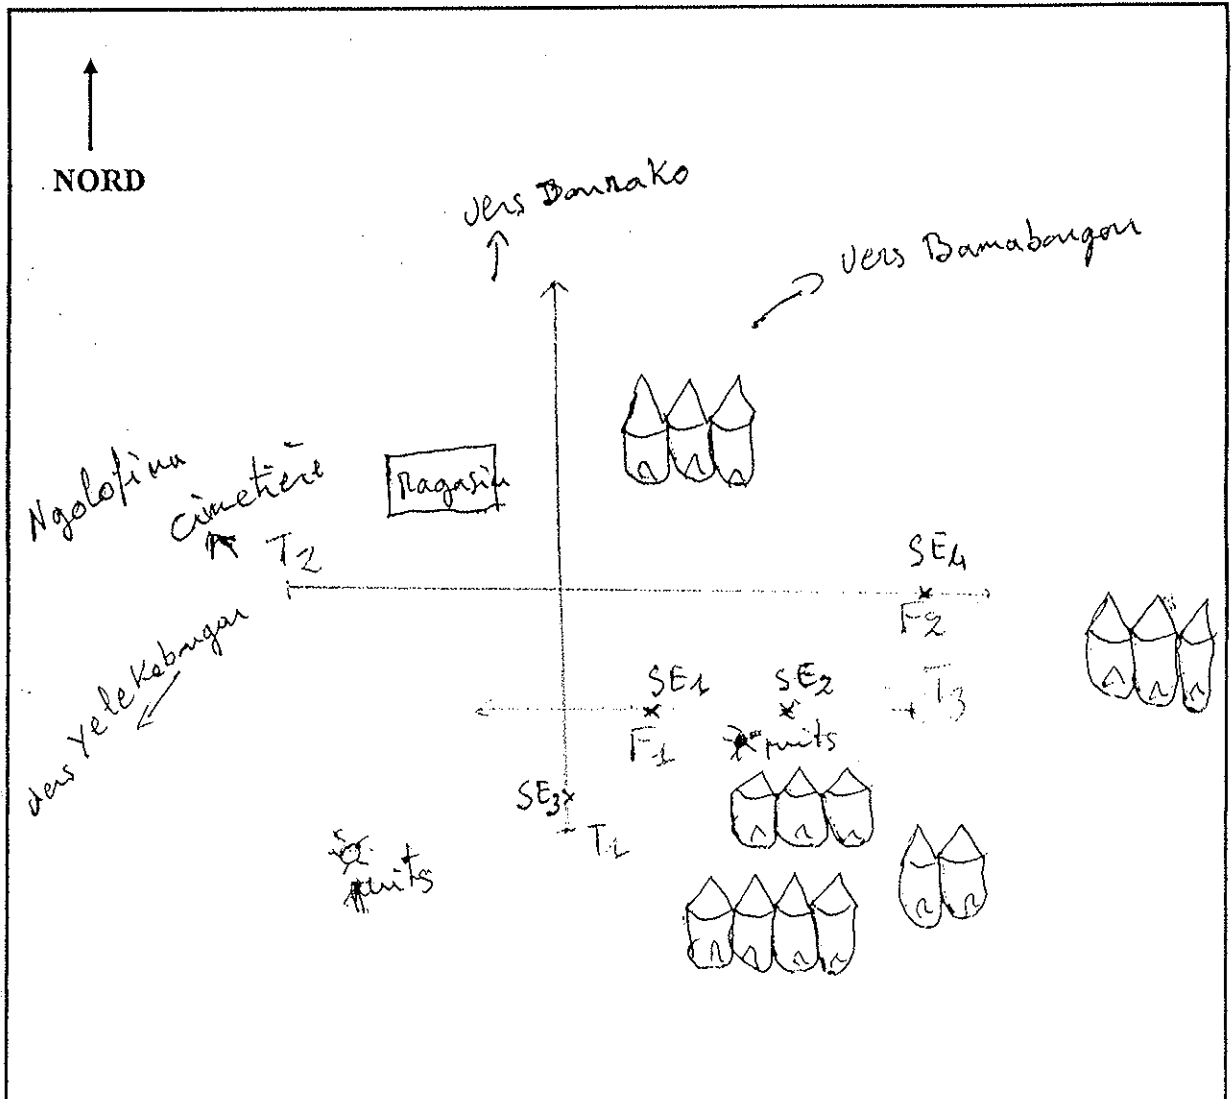 NORD
vers Bamako
vers Bamabougou
Ngolofina
cimetière
Magasin
T2
SE4
F2
vers Yelekebougou
SE1
SE2
T3
F1
puits
SE3
T1
puits